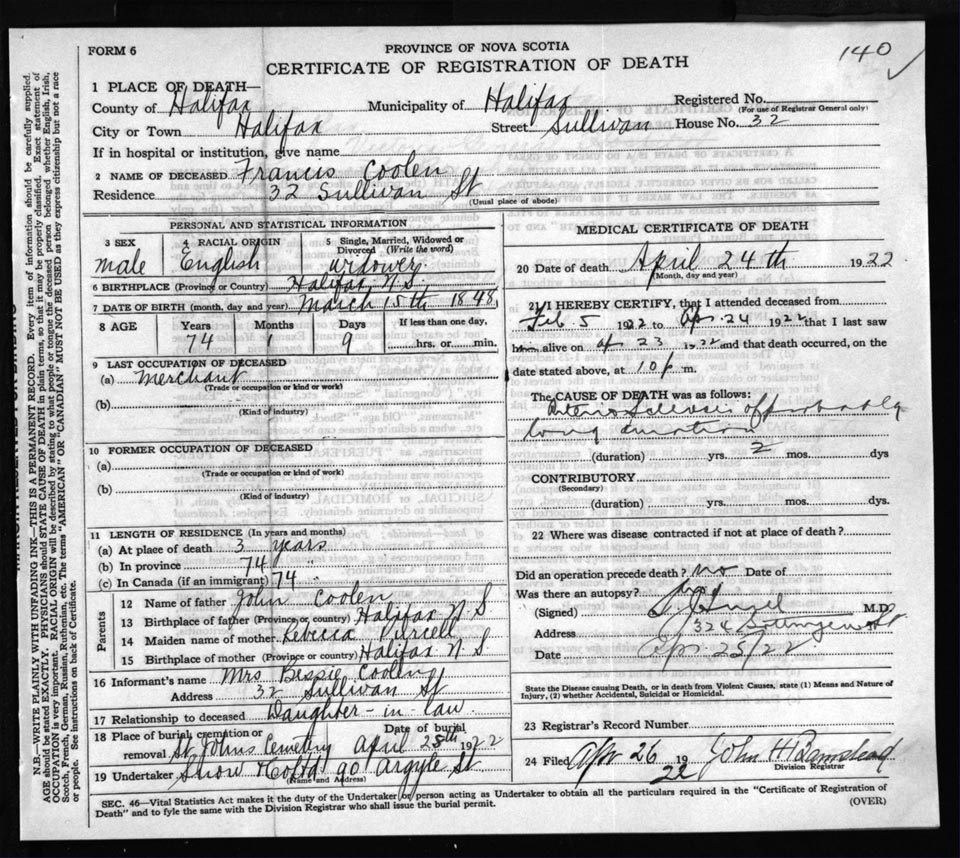 FORM 6
PROVINCE OF NOVA SCOTIA
CERTIFICATE OF REGISTRATION OF DEATH
140
1 PLACE OF DEATH—
County of Halifax Municipality of Halifax Registered No.
(For use of Registrar General only)
City or Town Halifax Street Sullivan House No. 32
If in hospital or institution, give name
2 NAME OF DECEASED Francis Coolen
Residence 32 Sullivan St
(Usual place of abode)
PERSONAL AND STATISTICAL INFORMATION
3 SEX 4 RACIAL ORIGIN 5 Single, Married, Widowed or Divorced (Write the word)
male English widower
6 BIRTHPLACE (Province or Country) Halifax N.S
7 DATE OF BIRTH (month, day and year) March 15th 1848
8 AGE Years Months Days If less than one day,
74 1 9 hrs. or min.
9 LAST OCCUPATION OF DECEASED
(a) Merchant
(Trade or occupation or kind or work)
(b)
(Kind of industry)
10 FORMER OCCUPATION OF DECEASED
(a)
(Trade or occupation or kind of work)
(b)
(Kind of industry)
11 LENGTH OF RESIDENCE (In years and months)
(a) At place of death 3 years
(b) In province 74 "
(c) In Canada (if an immigrant) 74 "
Parents
12 Name of father John Coolen
13 Birthplace of father (Province or country) Halifax N S
14 Maiden name of mother Rebecca Purcell
15 Birthplace of mother (Province or country) Halifax N. S
16 Informant's name Mrs Bessie Coolen
Address 32 Sullivan St
17 Relationship to deceased Daughter-in-law
18 Place of burial, cremation or removal St Johns Cemetery Date of burial April 25th 1922
19 Undertaker Snow & Co Ltd 90 Argyle St
(Name and Address)
MEDICAL CERTIFICATE OF DEATH
20 Date of death April 24th 1922
(Month, day and year)
21 I HEREBY CERTIFY, that I attended deceased from
Feb. 5 1922 to Ap. 24 1922 that I last saw
him alive on ap 23 1922 and that death occurred, on the
date stated above, at 10 p m.
The CAUSE OF DEATH was as follows:
Arterio Sclerosis of probably
long duration
(duration) yrs. 2 mos. dys
CONTRIBUTORY
(Secondary)
(duration) yrs. mos. dys.
22 Where was disease contracted if not at place of death?
Did an operation precede death? no Date of
Was there an autopsy? no
(Signed) M.D.
Address 324
Date Apr 25/22
State the Disease causing Death, or in death from Violent Causes, state (1) Means and Nature of
Injury, (2) whether Accidental, Suicidal or Homicidal.
23 Registrar's Record Number
24 Filed Apr 26 1922 John H Barnstead
Division Registrar
SEC. 46—Vital Statistics Act makes it the duty of the Undertaker or person acting as Undertaker to obtain all the particulars required in the "Certificate of Registration of
Death" and to fyle the same with the Division Registrar who shall issue the burial permit.
(OVER)
N.B.—WRITE PLAINLY WITH UNFADING INK—THIS IS A PERMANENT RECORD. Every item of information should be carefully supplied.
AGE should be stated EXACTLY. PHYSICIANS should STATE CAUSE OF DEATH in plain terms, so that it may be properly classified. Exact statement of
OCCUPATION is very important. RACIAL ORIGIN will be described by stating to what people or tongue the deceased person belonged whether English, Irish,
Scotch, French, German, Russian, Ruthenian, etc. The terms "AMERICAN" OR "CANADIAN" MUST NOT BE USED as they express citizenship but not a race
or people. See instructions on back of Certificate.